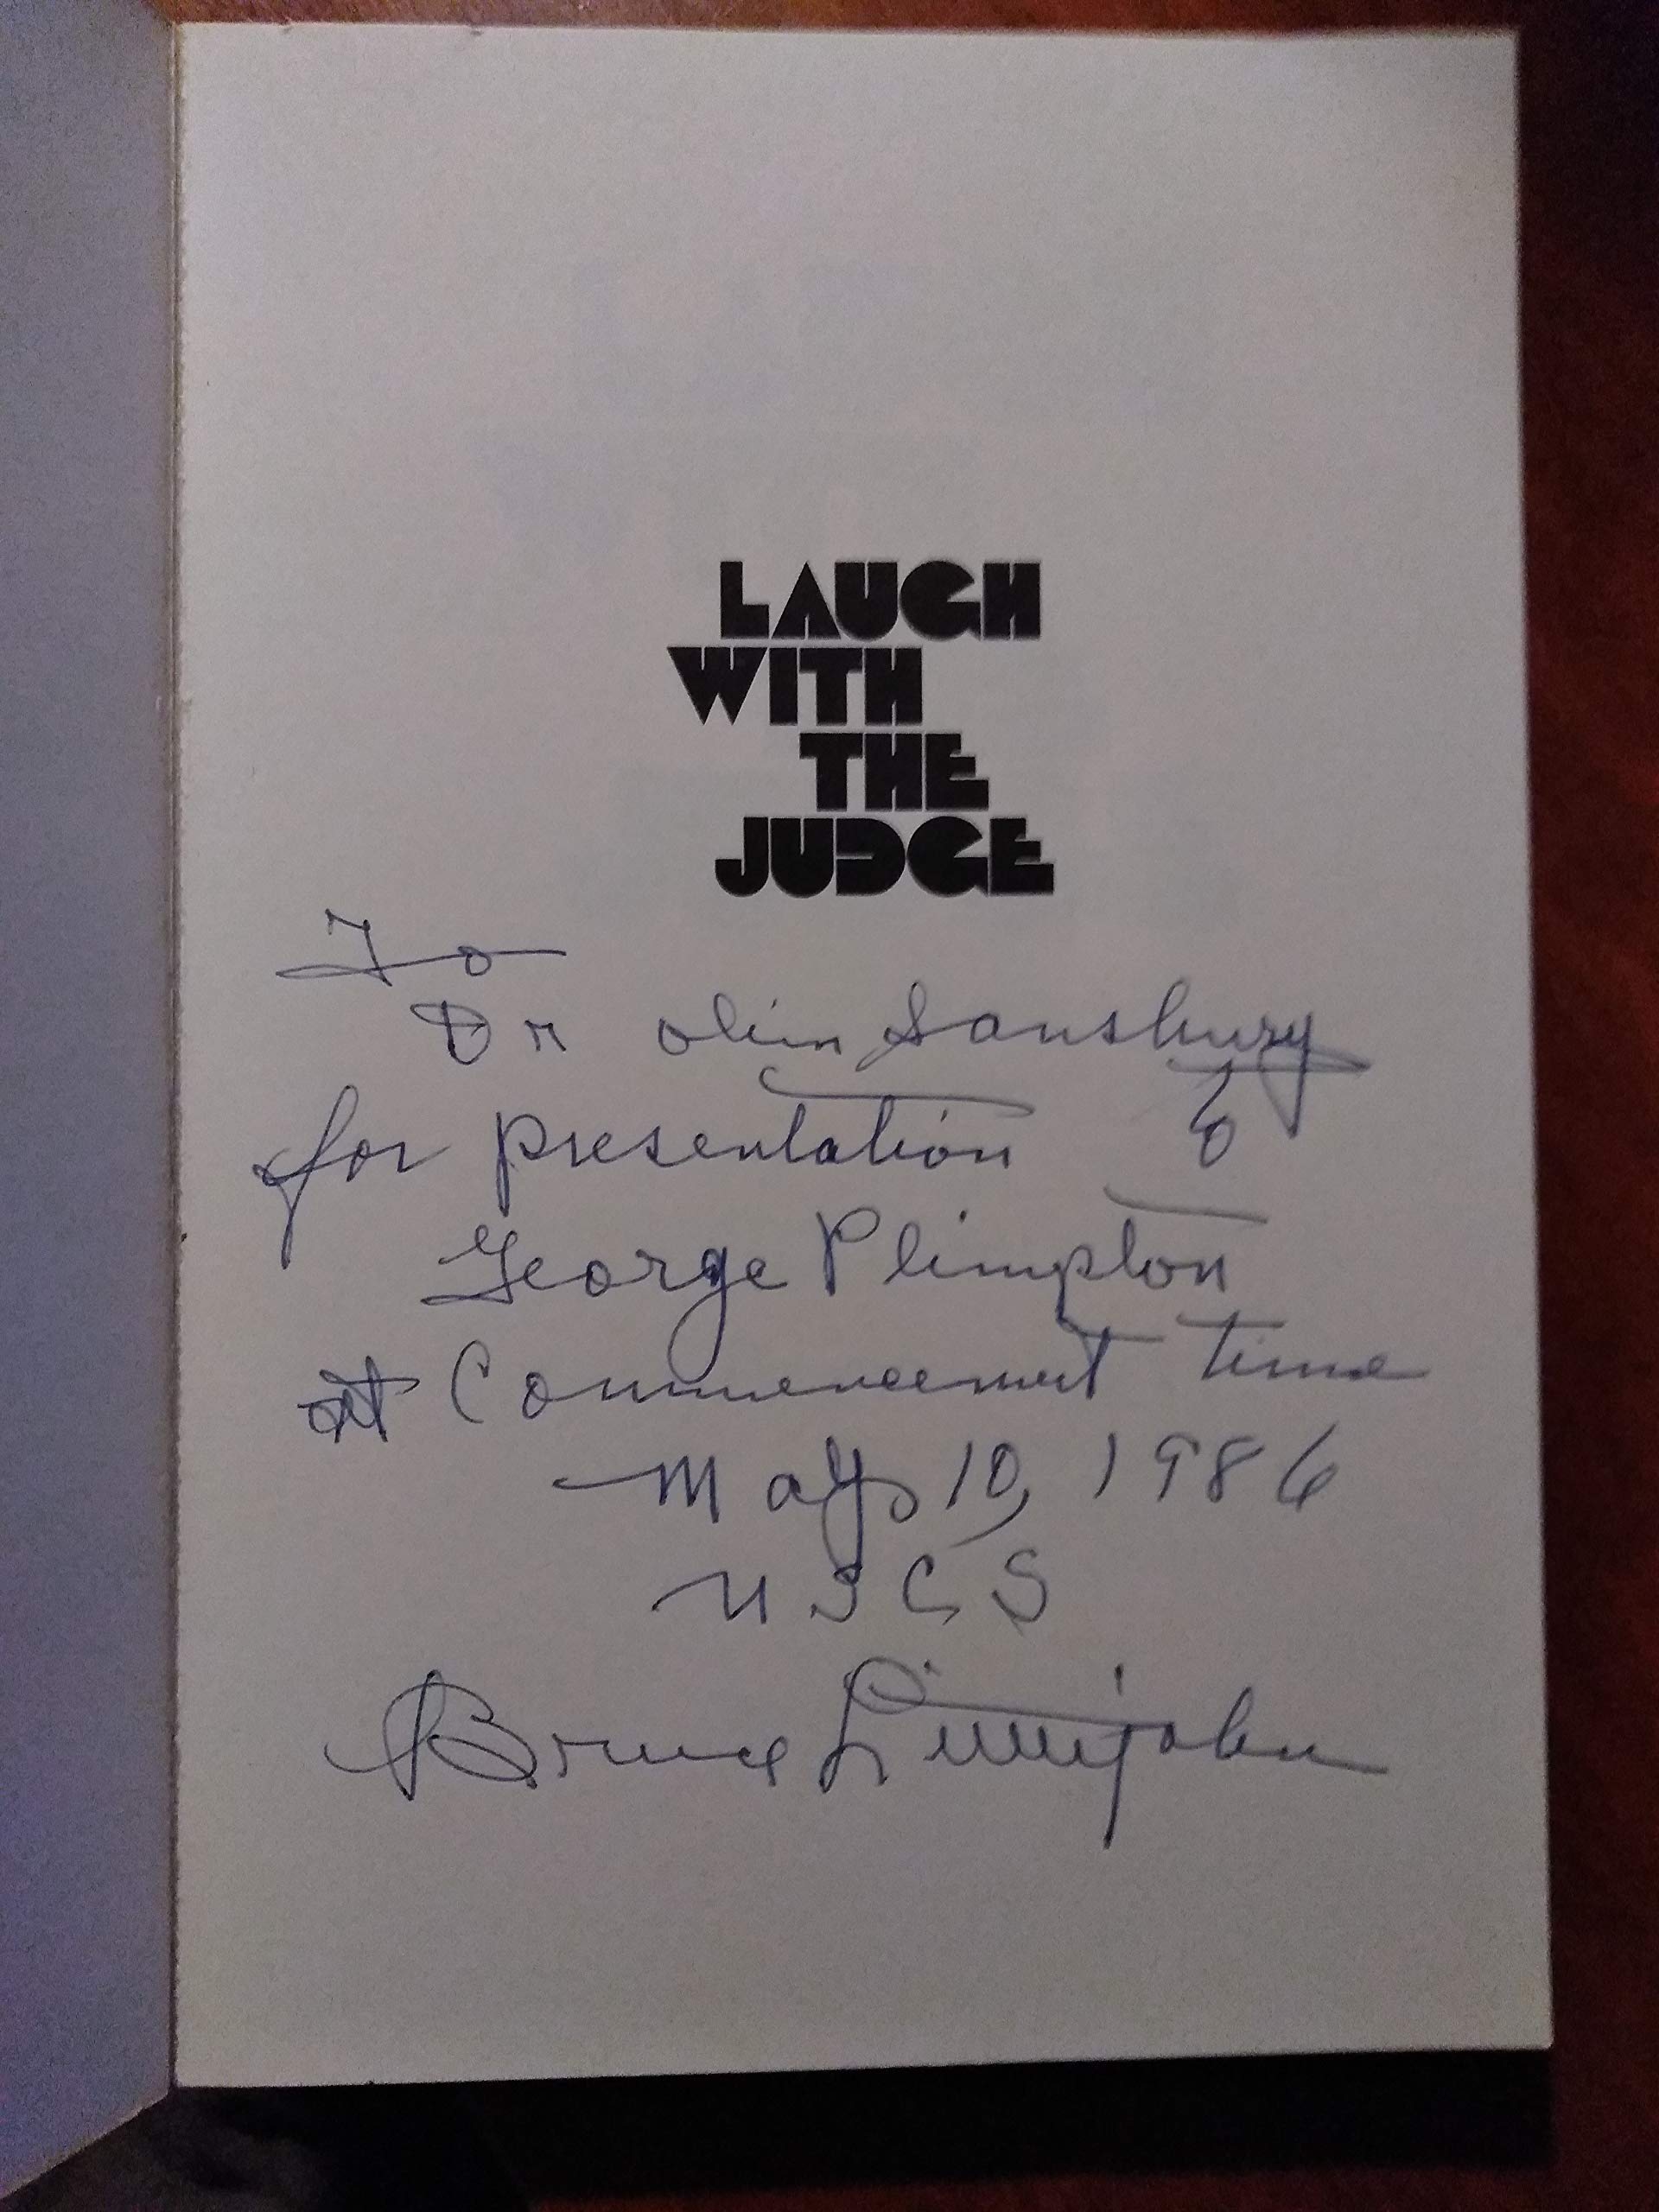 LAUGH
WITH
THE
JUDGE
To
Dr Olin Sansbury
for presentation to
George Plimpton
at Commencement time
May 10, 1986
USCS
Bruce Littlejohn